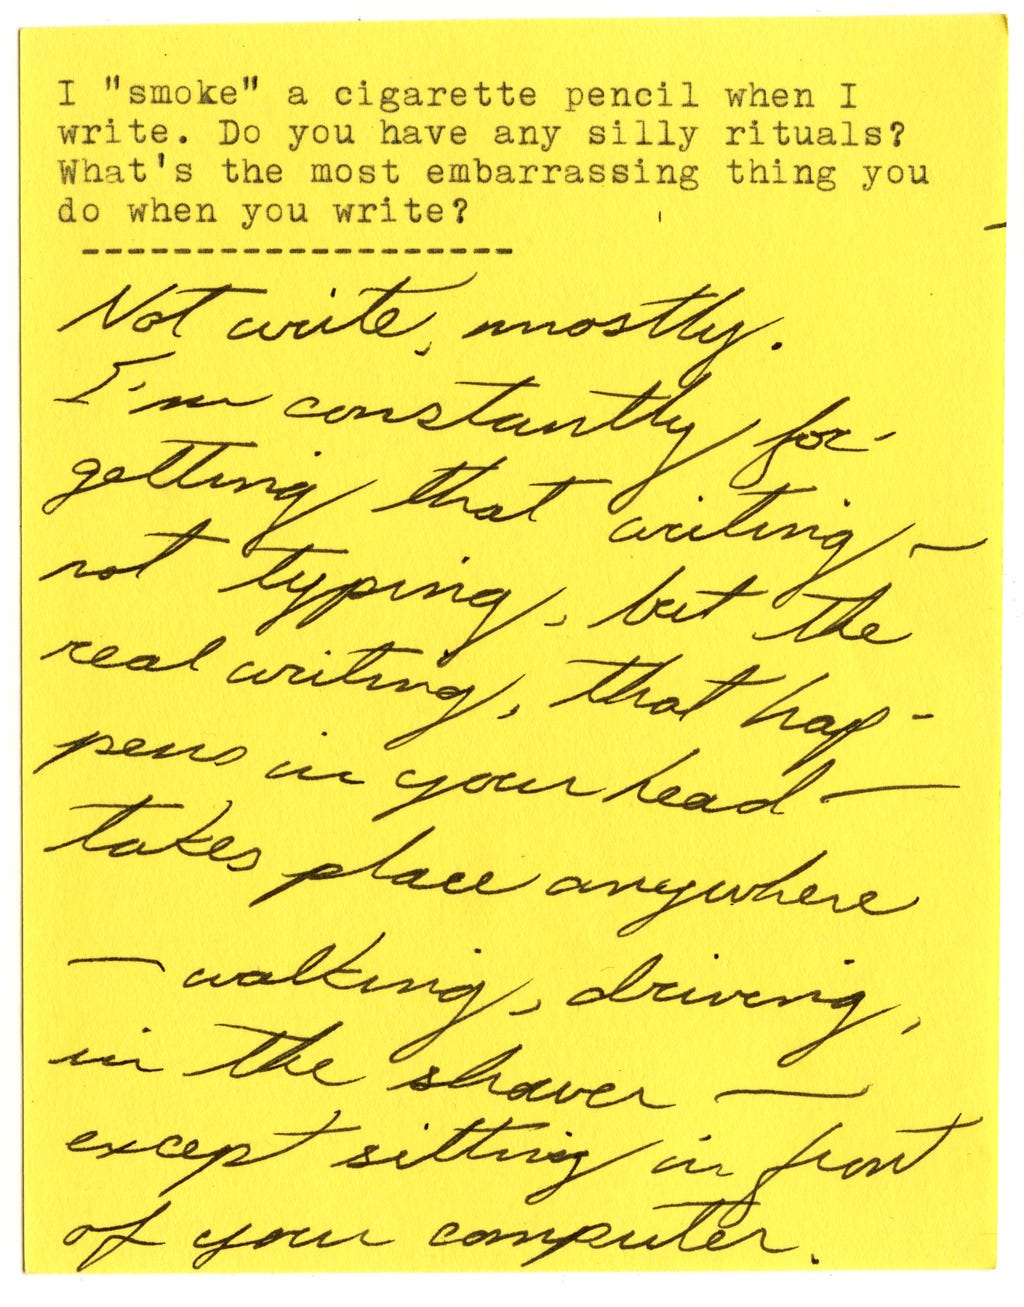 I "smoke" a cigarette pencil when I
write. Do you have any silly rituals?
What's the most embarrassing thing you
do when you write?
-------------------
Not write, mostly.
I'm constantly for-
getting that writing —
not typing, but the
real writing, that hap-
pens in your head —
takes place anywhere
— walking, driving,
in the shower —
except sitting in front
of your computer.